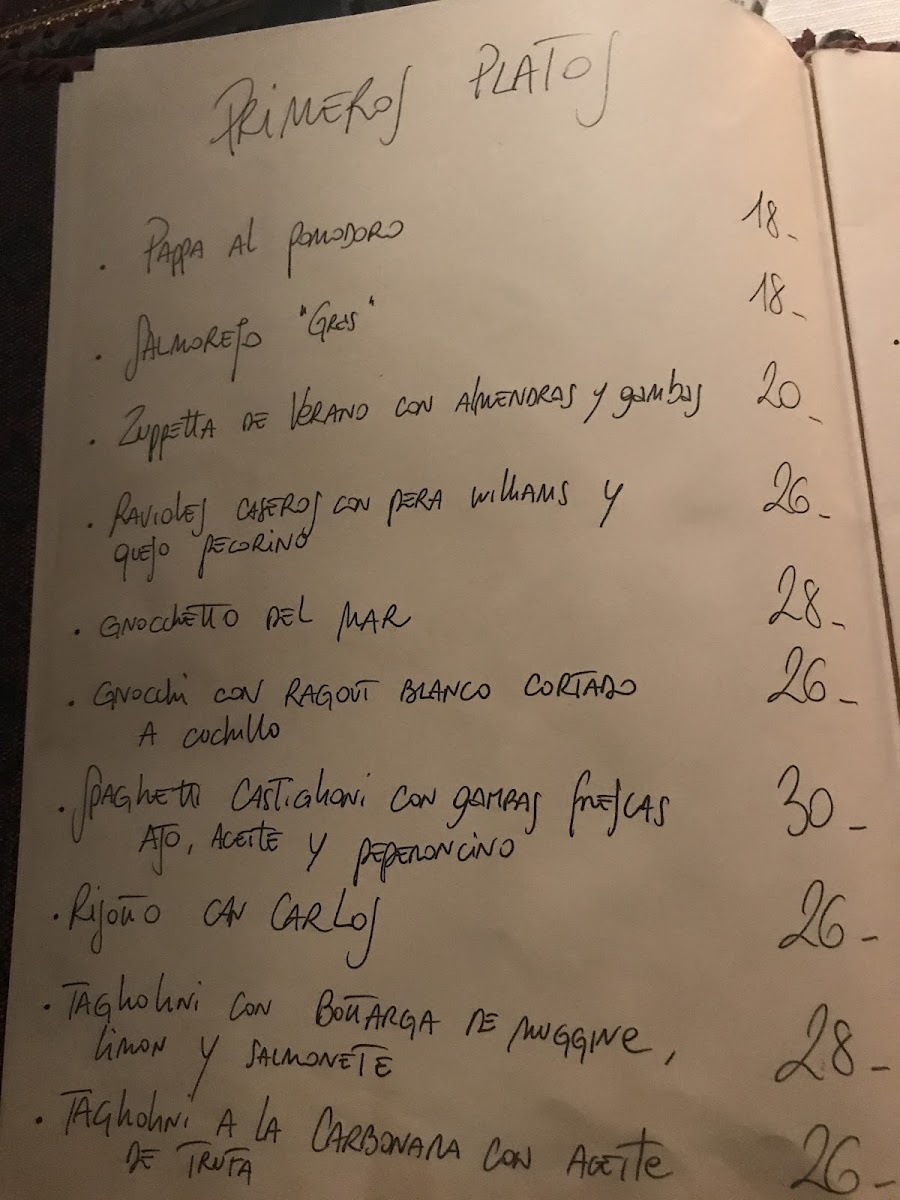 PRIMEROS PLATOS
• PAPPA AL POMODORO 18.-
• SALMOREJO "Gros" 18.-
• ZUPPETTA DE VERANO CON ALMENDRAS y gambas 20.-
• RAVIOLES CASEROS CON PERA WILLIAMS Y 26.-
QUEJO PECORINO
• GNOCCHETTO DEL MAR 28.-
• GNOCCHI CON RAGOUT BLANCO CORTADO 26.-
A CUCHILLO
• SPAGHETTI CASTIGLIONI CON GAMBAS FRESCAS 30.-
AJO, ACEITE Y PEPERONCINO
• RISOTTO CAN CARLOS 26.-
• TAGLIOLINI CON BOTTARGA DE MUGGINE, 28.-
LIMON Y SALMONETE
• TAGLIOLINI A LA CARBONARA CON ACEITE 26.-
DE TRUFA